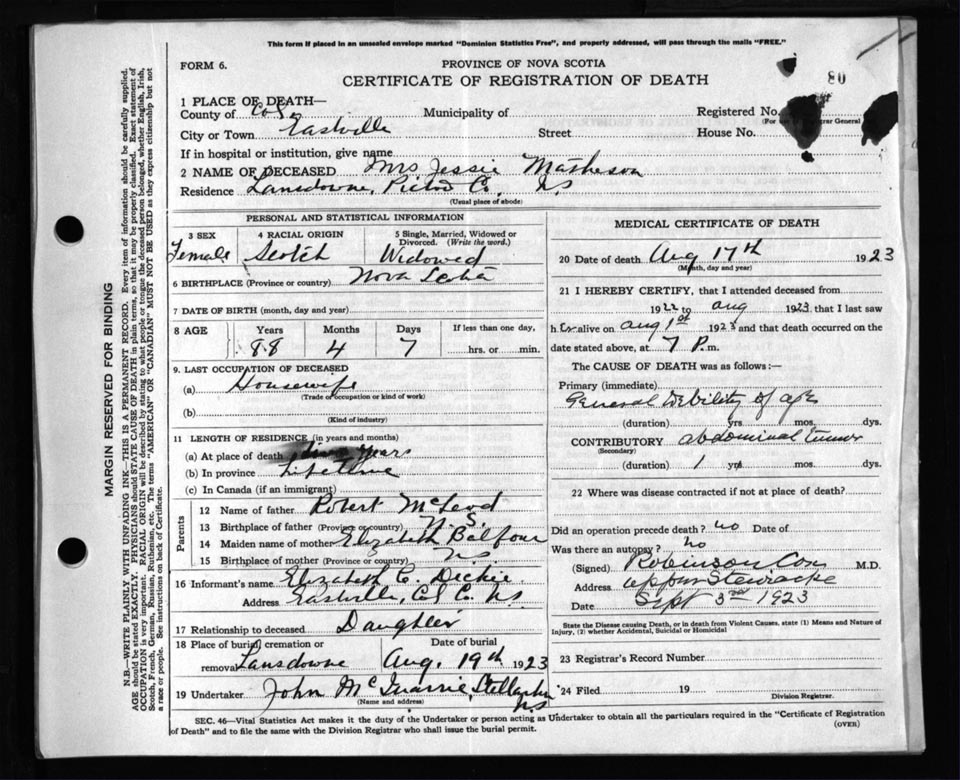 This form if placed in an unsealed envelope marked "Dominion Statistics Free", and properly addressed, will pass through the mails "FREE."
FORM 6.
PROVINCE OF NOVA SCOTIA
CERTIFICATE OF REGISTRATION OF DEATH
80
1 PLACE OF DEATH—
County of Col. Municipality of Registered No.
City or Town Eastville Street House No.
If in hospital or institution, give name
2 NAME OF DECEASED Mrs Jessie Matheson
Residence Lansdowne, Pictou Co., N S
(Usual place of abode)
PERSONAL AND STATISTICAL INFORMATION
3 SEX 4 RACIAL ORIGIN 5 Single, Married, Widowed or Divorced. (Write the word.)
Female Scotch Widowed
6 BIRTHPLACE (Province or country) Nova Scotia
7 DATE OF BIRTH (month, day and year)
8 AGE Years Months Days If less than one day,
88 4 7 hrs. or min.
9. LAST OCCUPATION OF DECEASED
(a) Housewife
(Trade or occupation or kind of work)
(b)
(Kind of industry)
11 LENGTH OF RESIDENCE (in years and months)
(a) At place of death years
(b) In province Lifetime
(c) In Canada (if an immigrant)
Parents
12 Name of father Robert McLeod
13 Birthplace of father (Province or country) N. S.
14 Maiden name of mother Elizabeth Balfour
15 Birthplace of mother (Province or country) N S
16 Informant's name Elizabeth C. Dickie
Address Eastville, Col. C. N S
17 Relationship to deceased Daughter
18 Place of burial, cremation or removal Lansdowne Date of burial Aug. 19th 1923
19 Undertaker John McQuarrie, Stellarton N S
(Name and address)
MEDICAL CERTIFICATE OF DEATH
20 Date of death Aug 17th 1923
(Month, day and year)
21 I HEREBY CERTIFY, that I attended deceased from
1922 to Aug 1923 that I last saw
her alive on Aug 1st 1923 and that death occurred on the
date stated above, at 7 P. m.
The CAUSE OF DEATH was as follows:—
Primary (immediate)
General Debility of age
(duration) yrs. mos. dys.
CONTRIBUTORY abdominal tumor
(Secondary)
(duration) 1 yrs. mos. dys.
22 Where was disease contracted if not at place of death?
Did an operation precede death? no Date of
Was there an autopsy? no
(Signed) Robinson Cox M.D.
Address Upper Stewiacke
Date Sept 3rd 1923
State the Disease causing Death, or in death from Violent Causes, state (1) Means and Nature of
Injury, (2) whether Accidental, Suicidal or Homicidal
23 Registrar's Record Number
24 Filed 19
Division Registrar.
SEC. 46—Vital Statistics Act makes it the duty of the Undertaker or person acting as Undertaker to obtain all the particulars required in the "Certificate of Registration
of Death" and to file the same with the Division Registrar who shall issue the burial permit.
(OVER)
MARGIN RESERVED FOR BINDING
N.B.—WRITE PLAINLY WITH UNFADING INK—THIS IS A PERMANENT RECORD. Every item of information should be carefully supplied.
AGE should be stated EXACTLY. PHYSICIANS should STATE CAUSE OF DEATH in plain terms, so that it may be properly classified. Exact statement of
OCCUPATION is very important. RACIAL ORIGIN will be described by stating to what people or tongue the deceased person belonged, whether English, Irish,
Scotch, French, German, Russian, Ruthenian, etc. The terms "AMERICAN" OR "CANADIAN" MUST NOT BE USED as they express citizenship but not
a race or people. See instructions on back of Certificate.